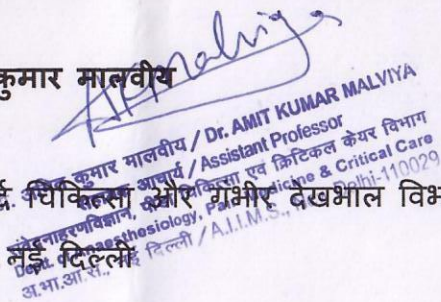 कुमार मालवीय
अमित कुमार मालवीय / Dr. AMIT KUMAR MALVIYA
आचार्य / Assistant Professor
चिकित्सा एवं क्रिटिकल केयर विभाग
Dept. of Anaesthesiology, Pain Medicine & Critical Care
अ.भा.आ.सं., नई दिल्ली / A.I.I.M.S., New Delhi-110029
र्द चिकित्सा और गंभीर देखभाल विभ
नई दिल्ली